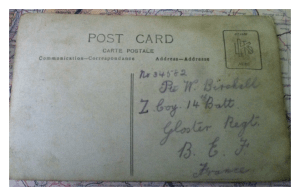 POST CARD
CARTE POSTALE
Communication—Correspondence
Address—Addresse
No 34562
Pte W. Birchall
Z Coy 14th Batt
Gloster Regt
B. E. F.
France